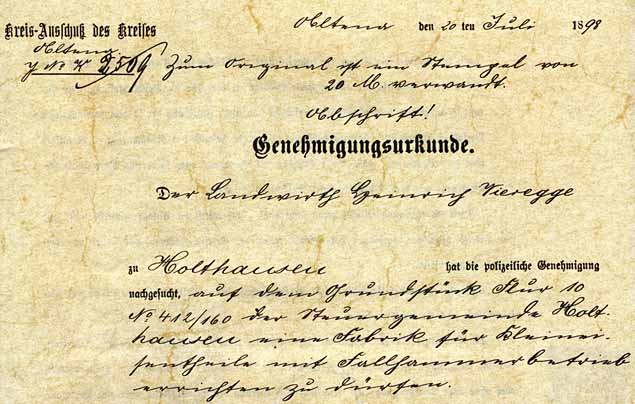 Kreis-Ausschuß des Kreises
Altena.
Altena den 20 ten Juli 1898
J No K 2509
Zum Original ist ein Stempel von
20 M. verwandt.
Abschrift!
Genehmigungsurkunde.
Der Landwirth Heinrich Vieregge
zu Holthausen hat die polizeiliche Genehmigung
nachgesucht, auf dem Grundstück Flur 10
No 412/160 der Steuergemeinde Holt-
hausen eine Fabrik für Kleinei-
sentheile mit Fallhammerbetrieb
errichten zu dürfen.